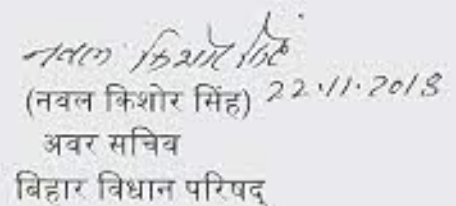 नवल किशोर सिंह
(नवल किशोर सिंह) 22.11.2018
अवर सचिव
बिहार विधान परिषद्